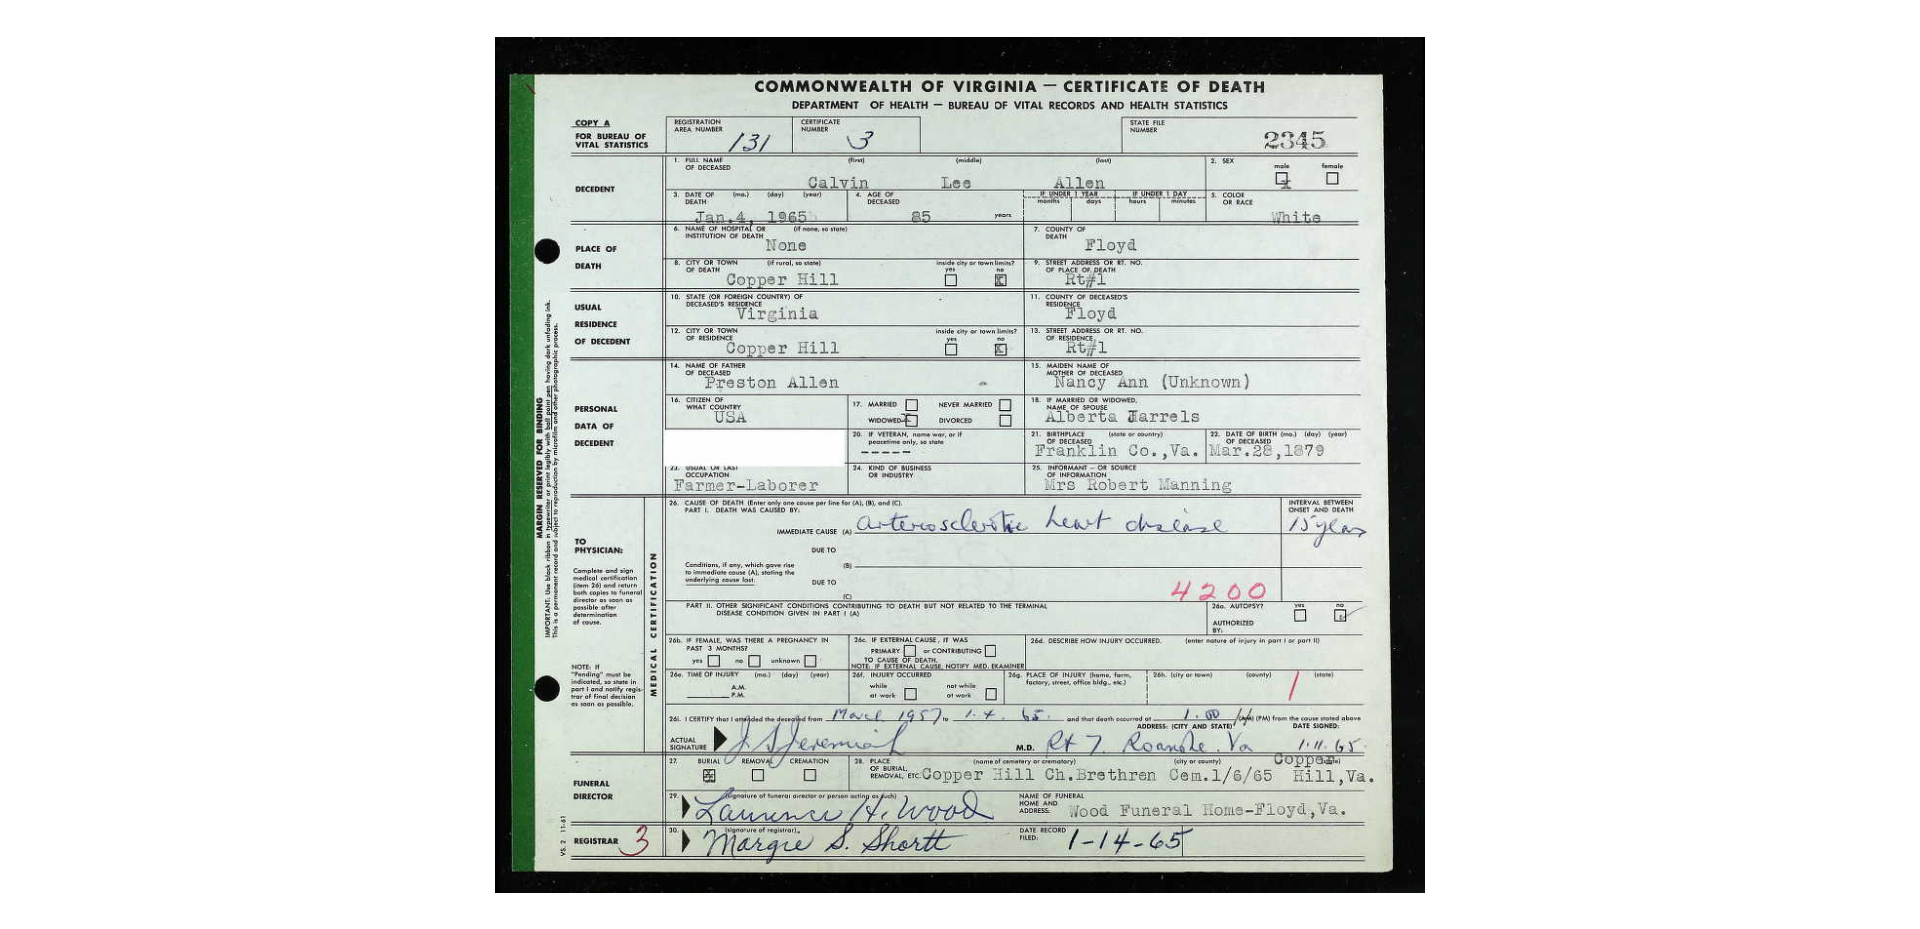 COMMONWEALTH OF VIRGINIA — CERTIFICATE OF DEATH
DEPARTMENT OF HEALTH — BUREAU OF VITAL RECORDS AND HEALTH STATISTICS
COPY A
FOR BUREAU OF
VITAL STATISTICS
REGISTRATION
AREA NUMBER
131
CERTIFICATE
NUMBER
3
STATE FILE
NUMBER
2345
DECEDENT
1. FULL NAME
OF DECEASED
(first) (middle) (last)
Calvin Lee Allen
2. SEX
male female
X
3. DATE OF (mo.) (day) (year)
DEATH
Jan.4, 1965
4. AGE OF
DECEASED
85 years
IF UNDER 1 YEAR
months days
IF UNDER 1 DAY
hours minutes
5. COLOR
OR RACE
White
PLACE OF
DEATH
6. NAME OF HOSPITAL OR (if none, so state)
INSTITUTION OF DEATH
None
7. COUNTY OF
DEATH
Floyd
8. CITY OR TOWN (if rural, so state)
OF DEATH
Copper Hill
inside city or town limits?
yes no
X
9. STREET ADDRESS OR RT. NO.
OF PLACE OF DEATH
Rt#1
USUAL
RESIDENCE
OF DECEDENT
10. STATE (OR FOREIGN COUNTRY) OF
DECEASED'S RESIDENCE
Virginia
11. COUNTY OF DECEASED'S
RESIDENCE
Floyd
12. CITY OR TOWN
OF RESIDENCE
Copper Hill
inside city or town limits?
yes no
X
13. STREET ADDRESS OR RT. NO.
OF RESIDENCE
Rt#1
PERSONAL
DATA OF
DECEDENT
14. NAME OF FATHER
OF DECEASED
Preston Allen
15. MAIDEN NAME OF
MOTHER OF DECEASED
Nancy Ann (Unknown)
16. CITIZEN OF
WHAT COUNTRY
USA
17. MARRIED NEVER MARRIED
WIDOWED X DIVORCED
18. IF MARRIED OR WIDOWED,
NAME OF SPOUSE
Alberta Jarrels
20. IF VETERAN, name war, or if
peacetime only, so state
-----
21. BIRTHPLACE (state or country)
OF DECEASED
Franklin Co.,Va.
22. DATE OF BIRTH (mo.) (day) (year)
OF DECEASED
Mar.28,1879
23. USUAL OR LAST
OCCUPATION
Farmer-Laborer
24. KIND OF BUSINESS
OR INDUSTRY
25. INFORMANT — OR SOURCE
OF INFORMATION
Mrs Robert Manning
MARGIN RESERVED FOR BINDING
IMPORTANT: Use black ribbon in typewriter or print legibly with ball point pen having dark unfading ink.
This is a permanent record and subject to reproduction by microfilm and other photographic process.
TO
PHYSICIAN:
Complete and sign
medical certification
(item 26) and return
both copies to funeral
director as soon as
possible after
determination
of cause.
NOTE: If
"Pending" must be
indicated, so state in
part I and notify regis-
trar of final decision
as soon as possible.
MEDICAL CERTIFICATION
26. CAUSE OF DEATH (Enter only one cause per line for (A), (B), and (C).
PART I. DEATH WAS CAUSED BY:
INTERVAL BETWEEN
ONSET AND DEATH
IMMEDIATE CAUSE (A) arteriosclerotic heart disease 15 years
DUE TO
Conditions, if any, which gave rise
to immediate cause (A), stating the
underlying cause last.
(B)
DUE TO
(C)
4200
PART II. OTHER SIGNIFICANT CONDITIONS CONTRIBUTING TO DEATH BUT NOT RELATED TO THE TERMINAL
DISEASE CONDITION GIVEN IN PART I (A)
26a. AUTOPSY? yes no
AUTHORIZED
BY:
26b. IF FEMALE, WAS THERE A PREGNANCY IN
PAST 3 MONTHS?
yes no unknown
26c. IF EXTERNAL CAUSE, IT WAS
PRIMARY or CONTRIBUTING
TO CAUSE OF DEATH.
NOTE: IF EXTERNAL CAUSE, NOTIFY MED. EXAMINER
26d. DESCRIBE HOW INJURY OCCURRED. (enter nature of injury in part I or part II)
26e. TIME OF INJURY (mo.) (day) (year)
A.M.
P.M.
26f. INJURY OCCURRED
while not while
at work at work
26g. PLACE OF INJURY (home, farm,
factory, street, office bldg., etc.)
26h. (city or town) (county) (state)
1
26i. I CERTIFY that I attended the deceased from March 1957 to 1.4.65. and that death occurred at 1.00 (AM) (PM) from the cause stated above
ADDRESS: (CITY AND STATE) DATE SIGNED:
ACTUAL
SIGNATURE
J S Jeremiah M.D. Rt 7. Roanoke. Va 1.11.65.
FUNERAL
DIRECTOR
27. BURIAL REMOVAL CREMATION
X
28. PLACE
OF BURIAL,
REMOVAL, ETC.
(name of cemetery or crematory) (city or county) (state)
Copper
Copper Hill Ch.Brethren Cem.1/6/65 Hill,Va.
29. (signature of funeral director or person acting as such)
Laurence H. Wood
NAME OF FUNERAL
HOME AND
ADDRESS:
Wood Funeral Home-Floyd,Va.
REGISTRAR 3
30. (signature of registrar)
Margie S. Shortt
DATE RECORD
FILED:
1-14-65
VS. 2 11-61